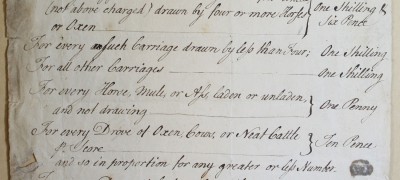 (not above charged) drawn by four or more Horses
or Oxen
One Shilling &
Six Pence
For every such Carriage drawn by less than Four; One Shilling
For all other Carriages One Shilling
For every Horse, Mule, or Ass, laden or unladen,
and not drawing
One Penny
For every Drove of Oxen, Cows, or Neat Cattle
Score
Ten Pence
and so in proportion for any greater or less Number.